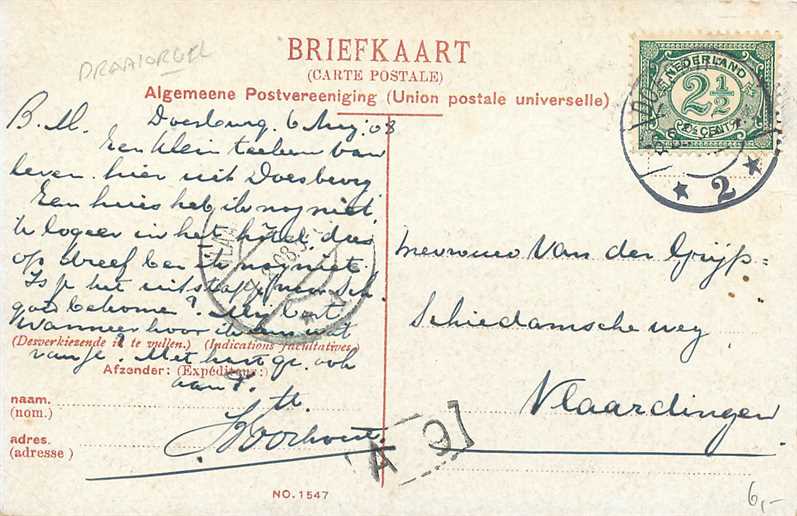 DRAAIORGEL
BRIEFKAART
(CARTE POSTALE)
Algemeene Postvereeniging (Union postale universelle)
NEDERLAND
2½
2½ CENT
2
B.M. Doesburg 6 Aug. 08
Een klein teeken van
leven hier uit Doesburg
Een huis heb ik nog niet,
ik logeer in het hotel dus
op dreef ben ik nog niet.
Is je het uitstapje naar
goed bekome?
Wanneer hoor ik eens wat
(Desverkiezende in te vullen.) (Indications facultatives.)
van je. Met hart. gr. ook
Afzender: (Expéditeur:)
aan
naam.
(nom.)
adres.
(adresse)
Mevrouw Van der Grijp=
Schiedamsche weg
Vlaardingen
NO. 1547
6,-